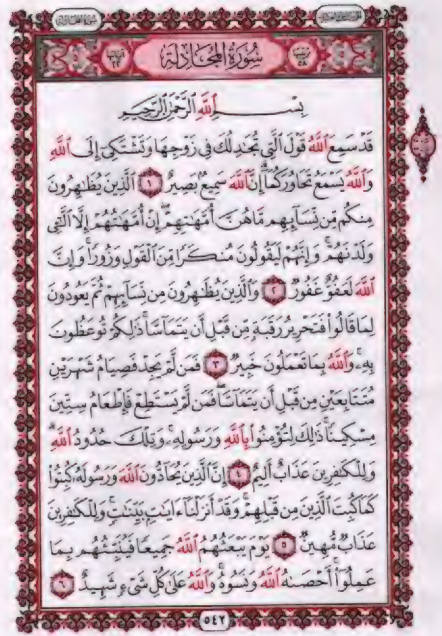 سُورَةُ المُجَادلَة
بِسْمِ ٱللَّهِ ٱلرَّحْمَٰنِ ٱلرَّحِيمِ
قَدْ سَمِعَ ٱللَّهُ قَوْلَ ٱلَّتِي تُجَٰدِلُكَ فِي زَوْجِهَا وَتَشْتَكِيٓ إِلَى ٱللَّهِ
وَٱللَّهُ يَسْمَعُ تَحَاوُرَكُمَآ إِنَّ ٱللَّهَ سَمِيعُۢ بَصِيرٌ ١ ٱلَّذِينَ يُظَٰهِرُونَ
مِنكُم مِّن نِّسَآئِهِم مَّا هُنَّ أُمَّهَٰتِهِمْ إِنْ أُمَّهَٰتُهُمْ إِلَّا ٱلَّٰٓـِٔي
وَلَدْنَهُمْ وَإِنَّهُمْ لَيَقُولُونَ مُنكَرًا مِّنَ ٱلْقَوْلِ وَزُورًا وَإِنَّ
ٱللَّهَ لَعَفُوٌّ غَفُورٌ ٢ وَٱلَّذِينَ يُظَٰهِرُونَ مِن نِّسَآئِهِمْ ثُمَّ يَعُودُونَ
لِمَا قَالُوا۟ فَتَحْرِيرُ رَقَبَةٍ مِّن قَبْلِ أَن يَتَمَآسَّا ذَٰلِكُمْ تُوعَظُونَ
بِهِۦ وَٱللَّهُ بِمَا تَعْمَلُونَ خَبِيرٌ ٣ فَمَن لَّمْ يَجِدْ فَصِيَامُ شَهْرَيْنِ
مُتَتَابِعَيْنِ مِن قَبْلِ أَن يَتَمَآسَّا فَمَن لَّمْ يَسْتَطِعْ فَإِطْعَامُ سِتِّينَ
مِسْكِينًا ذَٰلِكَ لِتُؤْمِنُوا۟ بِٱللَّهِ وَرَسُولِهِۦ وَتِلْكَ حُدُودُ ٱللَّهِ
وَلِلْكَٰفِرِينَ عَذَابٌ أَلِيمٌ ٤ إِنَّ ٱلَّذِينَ يُحَآدُّونَ ٱللَّهَ وَرَسُولَهُۥ كُبِتُوا۟
كَمَا كُبِتَ ٱلَّذِينَ مِن قَبْلِهِمْ وَقَدْ أَنزَلْنَآ ءَايَٰتٍۭ بَيِّنَٰتٍ وَلِلْكَٰفِرِينَ
عَذَابٌ مُّهِينٌ ٥ يَوْمَ يَبْعَثُهُمُ ٱللَّهُ جَمِيعًا فَيُنَبِّئُهُم بِمَا
عَمِلُوٓا۟ أَحْصَىٰهُ ٱللَّهُ وَنَسُوهُ وَٱللَّهُ عَلَىٰ كُلِّ شَىْءٍ شَهِيدٌ ٦
٥٤٢